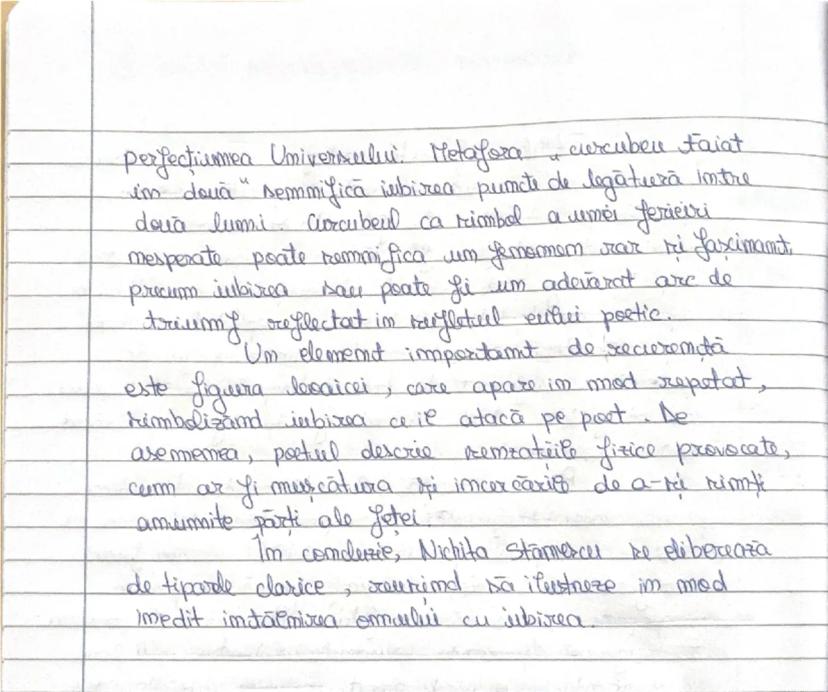 perfecțiunea Universului. Metafora „curcubeu tăiat
în două" semnifică iubirea puncte de legătură între
două lumi. Curcubeul ca simbol a unei fericiri
nesperate poate semnifica un fenomen rar și fascinant,
precum iubirea sau poate fi un adevărat arc de
triumf reflectat in sufletul eului poetic.
Un element important de recurență
este figura leoaicei, care apare in mod repetat,
simbolizând iubirea ce îl atacă pe poet. De
asemenea, poetul descrie senzațiile fizice provocate,
cum ar fi mușcătura și încercările de a-și simți
anumite părți ale feței.
În concluzie, Nichita Stănescu se eliberează
de tiparele clasice, reușind să ilustreze in mod
inedit întâlnirea omului cu iubirea.